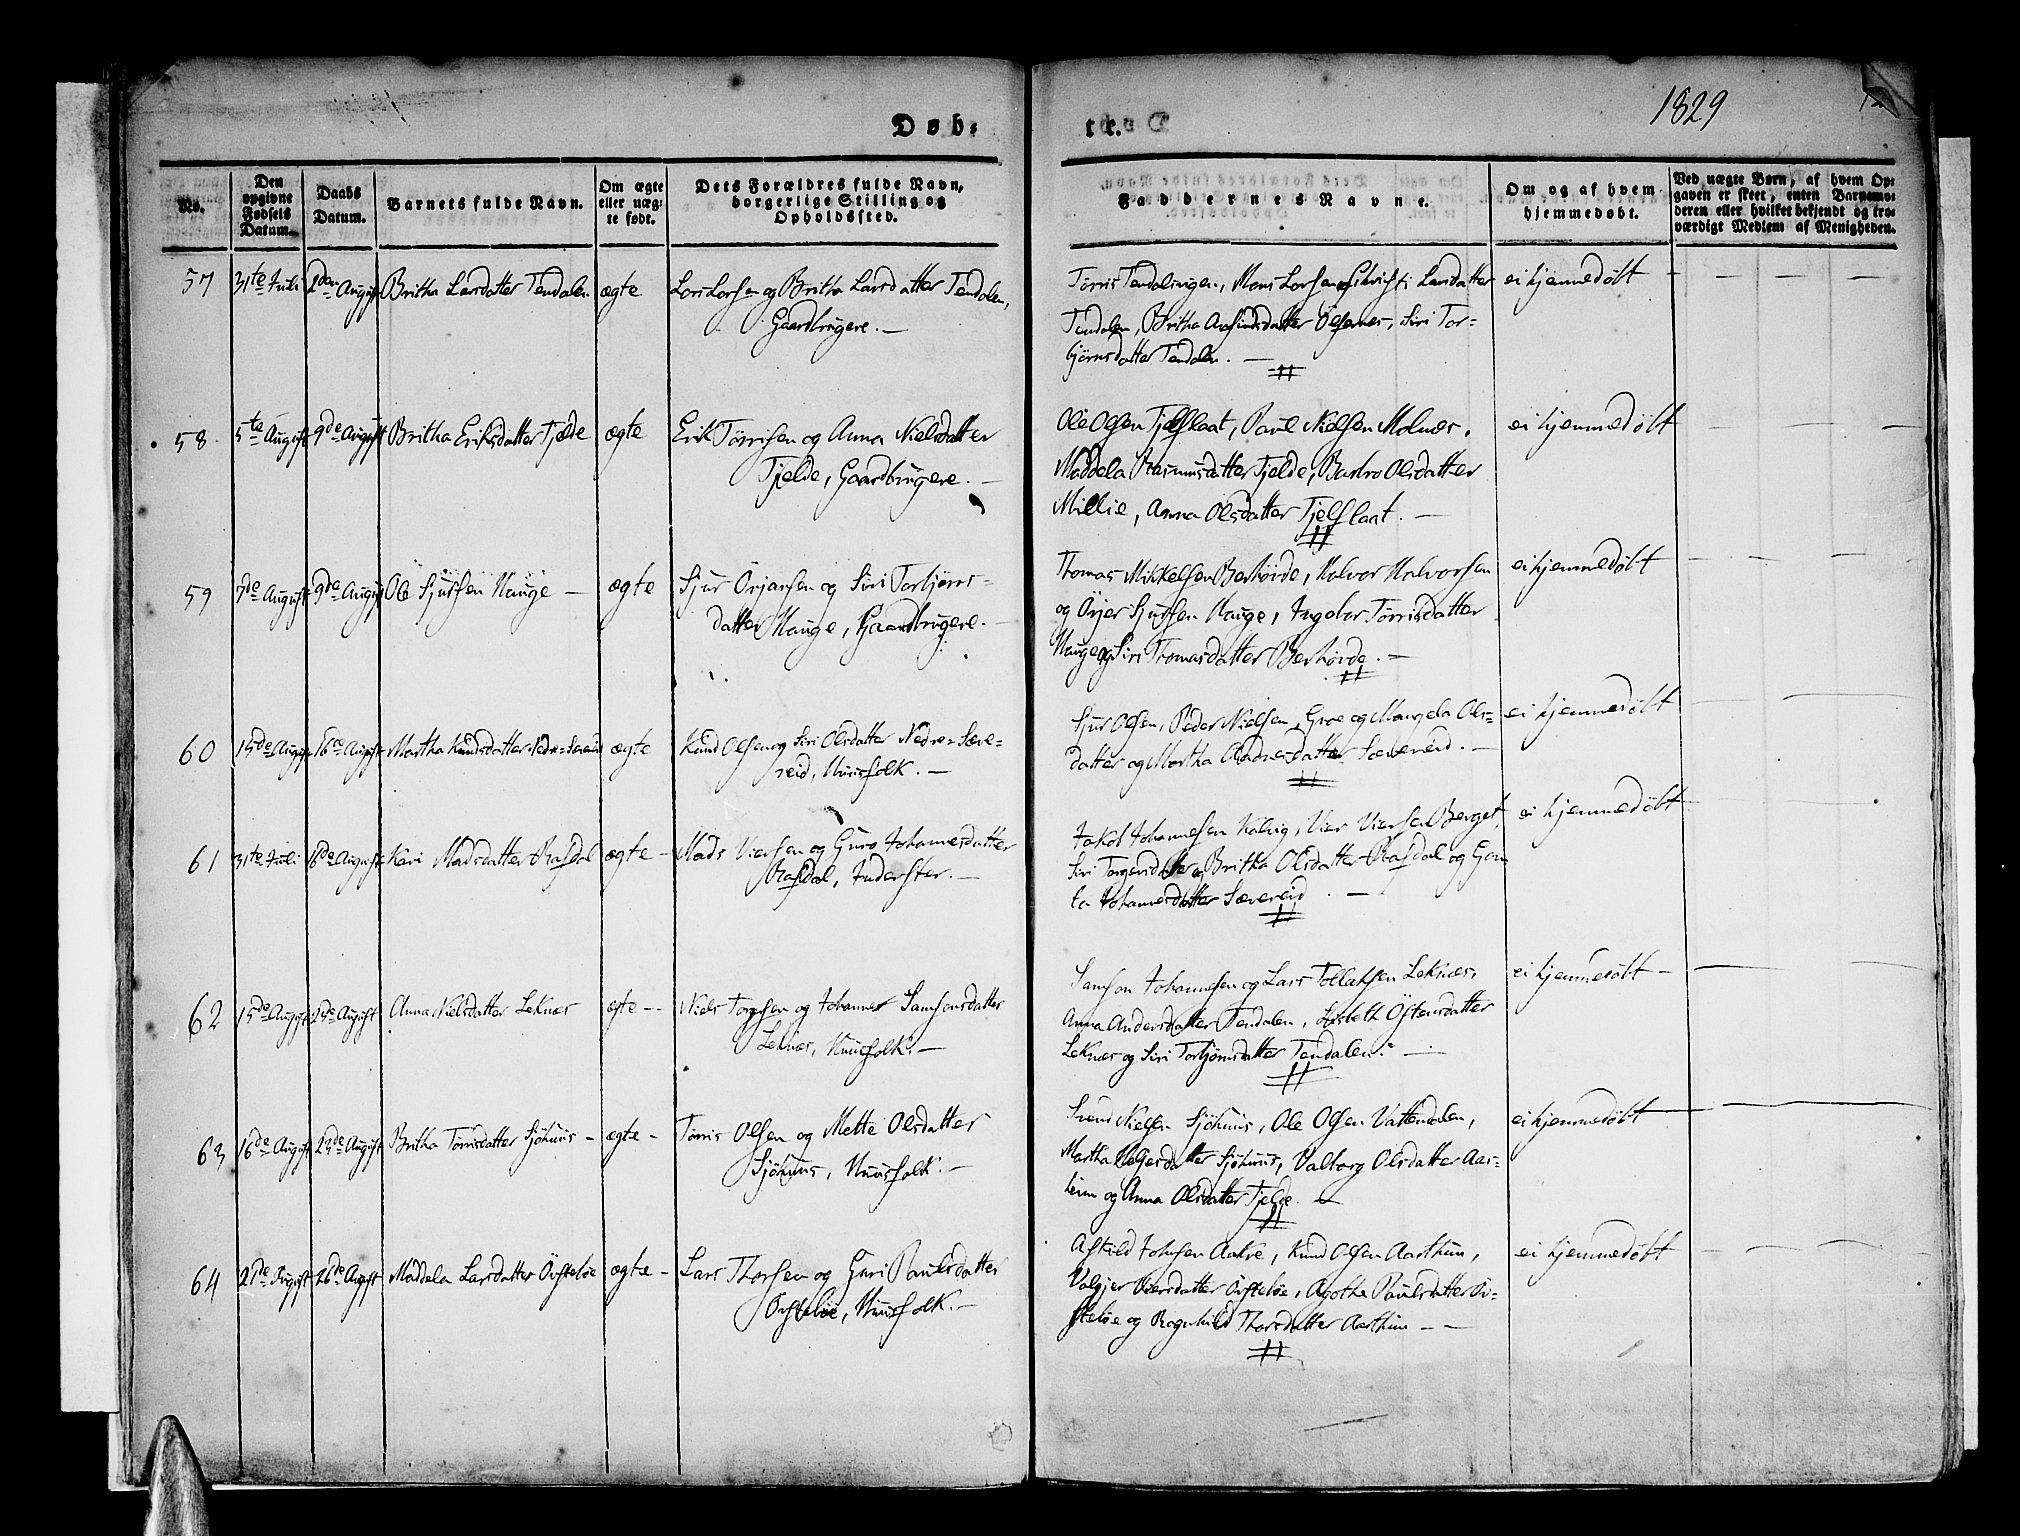 Døb=
te.
1829
No.
Den
opgivne
Fødsels
Datum.
Daabs
Datum.
Barnets fulde Navn.
Om ægte
eller uæg=
te født.
Dets Forældres fulde Navn,
borgerlige Stilling og
Opholdssted.
Faddernes Navne.
Om og af hvem
hjemmedøbt.
Ved uægte Børn, af hvem Op=
gaven er skeet, enten Barnemo=
deren eller hvilket bekjendt og tro=
værdigt Medlem af Menigheden.
57 31te Juli 2den August Britha Larsdatter Tendalen ægte
Lars Larsen og Britha Larsdatter Tendalen,
Gaardbrugere. —
Tørris Tendalsingen, Mons Larsen Christi Larsdatter
Tendalen, Britha Øfsernes, Siri Tor=
bjørnsdatter Tendalen. —
ei hjemmedøbt — — — —
58. 5te August 9de August Britha Eriksdatter Tjelde ægte
Erik Tørrisen og Anna Nielsdatter
Tjelde, Gaardbrugere. —
Ole Olsen Tjelflaat, Paul Nielsen Molnæs,
Maddela Rasmusdatter Tjelde, Barbro Olsdatter
Millie, Anna Olsdatter Tjelflaat. —
ei hjemmedøbt — — — —
59 7de August 9de August Ole Sjursen Hauge — ægte
Sjur Örjansen og Siri Torbjörns=
datter Hauge, Gaardbrugere. —
Thomas Mikkelsen Berhövde, Halvor Halvorsen
og Örjer Sjursen Hauge, Ingebor Törrisdatter
Hauge og Siri Thomasdatter Berhövde. —
ei hjemmedøbt — — — —
60 15de August 16de August Martha Knudsdatter Nedre=Sævereid ægte
Knud Olsen og Siri Olsdatter Nedre=Sæve=
reid, Huusfolk. —
Sjur Olsen, Peder Nielsen, Groe og Mangela Ols=
datter og Martha Sævereid. —
ei hjemmedøbt
61 31te Juli 16de August Kari Madsdatter Rafdal ægte —
Mads Viersen og Guro Johannesdatter
Rafdal, Inderster. —
Jakob Johannesen Kalvig, Vier Viersen Berget,
Siri Torgersdatter og Britha Olsdatter Rafdal og Gou
la Johannesdatter Sævereid. —
ei hjemmedøbt
62 15de August 23de August Anna Nielsdatter Leknæs ægte — —
Niels Torgesen og Johanne Samsonsdatter
Leknæs, Huusfolk. —
Samson Johannesen og Lars Tollaksen Leknæs,
Anna Andersdatter Tendalen, Lisbeth Östensdatter
Leknæs og Siri Torbjörnsdatter Tendalen. —
ei hjemmedøbt —
63 16de August 23de August Britha Törrisdatter Sjöhuus — ægte —
Törris Olsen og Mette Olsdatter
Sjöhuus, Huusfolk. —
Svend Nielsen Sjöhuus, Ole Olsen Vattendalen,
Martha Sjöhuus, Valborg Olsdatter Aas=
heim og Anna Olsdatter Tjelde. —
ei hjemmedøbt
64 21de August 26de August Maddela Larsdatter Övsteböe ægte —
Lars Thorsen og Guri Paulsdatter
Övsteböe, Huusfolk. —
Askild Johnsen Aakre, Knud Olsen Aarthun,
Valgjer Viersdatter Övsteböe, Agatha Paulsdatter Öv=
steböe og Ragnhild Thorsdatter Aarthun — —
ei hjemmedøbt — — — —